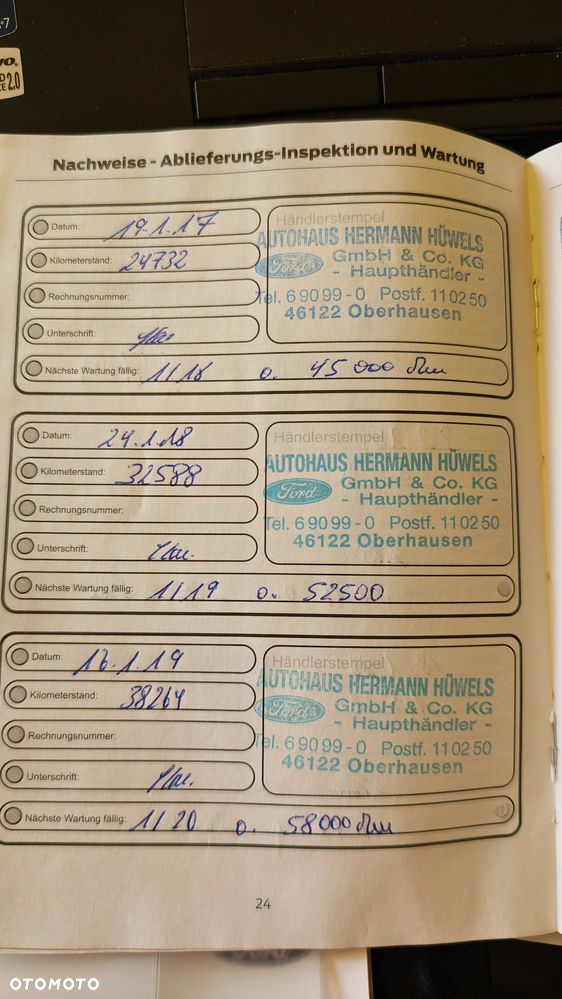 2.0
Nachweise - Ablieferungs-Inspektion und Wartung
Datum: 19.1.17
Kilometerstand: 24732
Rechnungsnummer:
Unterschrift:
Nächste Wartung fällig: 1/18 o. 45000 km
Händlerstempel
AUTOHAUS HERMANN HÜWELS
Ford GmbH & Co. KG
- Haupthändler -
Tel. 6 90 99 - 0 Postf. 11 02 50
46122 Oberhausen
Datum: 24.1.18
Kilometerstand: 32588
Rechnungsnummer:
Unterschrift:
Nächste Wartung fällig: 1/19 o. 52500
Händlerstempel
AUTOHAUS HERMANN HÜWELS
Ford GmbH & Co. KG
- Haupthändler -
Tel. 6 90 99 - 0 Postf. 11 02 50
46122 Oberhausen
Datum: 16.1.19
Kilometerstand: 38264
Rechnungsnummer:
Unterschrift:
Nächste Wartung fällig: 1/20 o. 58000 km
Händlerstempel
AUTOHAUS HERMANN HÜWELS
Ford GmbH & Co. KG
- Haupthändler -
Tel. 6 90 99 - 0 Postf. 11 02 50
46122 Oberhausen
24
OTOMOTO